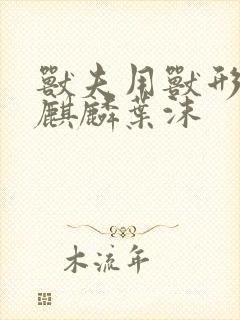 獸夫用獸形
麒麟葉沫
木流年